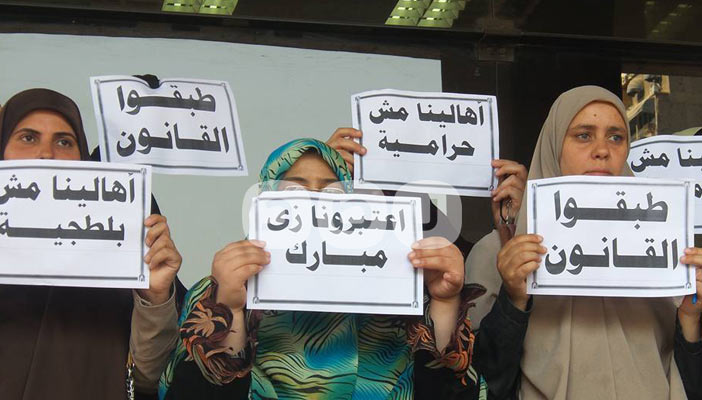 طبقوا
القانون
أهالينا مش
حرامية
أهالينا مش
بلطجية
اعتبرونا زى
مبارك
طبقوا
القانون
أهالينا مش